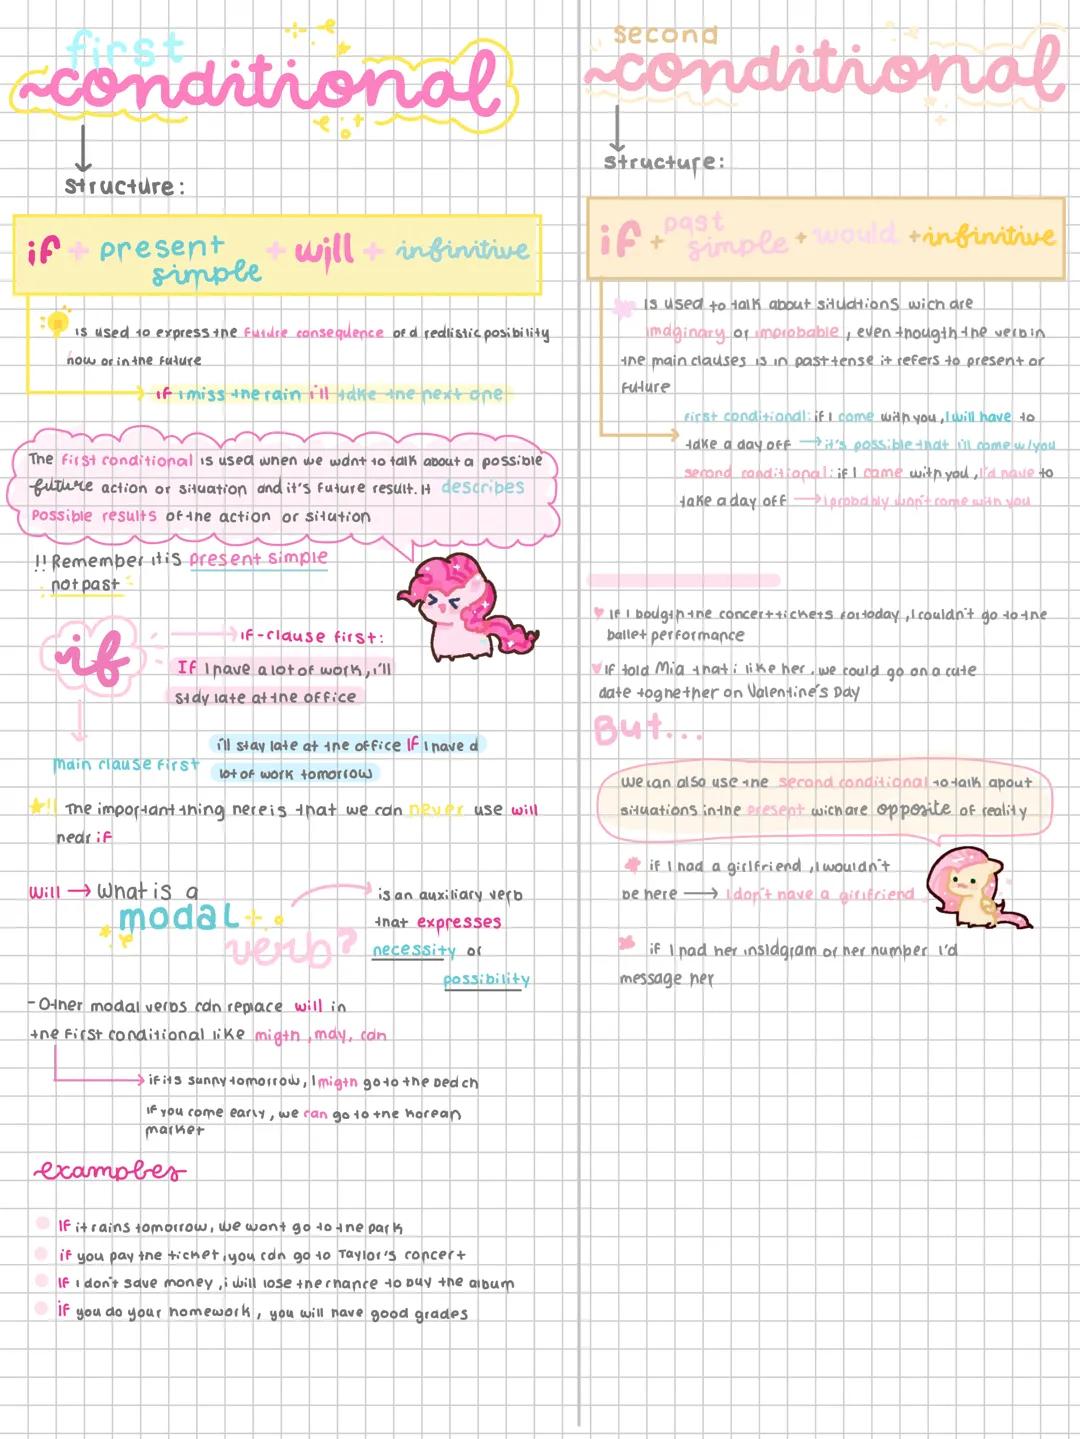 first
~conditional
structure:
if + present simple + will + infinitive
is used to express the Future consequence of a realistic posibility
now or in the future
if i miss the rain i'll take the next one
The first conditional is used when we want to talk about a possible
future action or situation and it's future result. It describes
possible results of the action or sitution
!! Remember it is present simple
not past
if
IF-clause first:
If I have a lot of work, i'll
stay late at the office
main clause first
i'll stay late at the office IF I have a
lot of work tomorrow
!! The important thing here is that we can never use will
near if
will → What is a
modal +
verb?
is an auxiliary verb
that expresses
necessity or
possibility
- Other modal verbs can replace will in
the first conditional like migth, may, can
if its sunny tomorrow, I migth go to the beach
if you come early, we can go to the korean
market
examples
If it rains tomorrow, we wont go to the park
if you pay the ticket, you can go to Taylor's concert
If i don't save money, i will lose the chance to buy the album
if you do your homework, you will have good grades
second
~conditional
structure:
if + past simple + would + infinitive
Is used to talk about situations wich are
imaginary or improbable, even thougth the verb in
the main clauses is in past tense it refers to present or
future
first conditional: if I come with you, I will have to
take a day off → it's possible that i'll come w/you
second conditional: if I came with you, I'd have to
take a day off → I probably won't come with you
If I bougth the concert tickets for today, I couldn't go to the
ballet performance
If told Mia that i like her, we could go on a cute
date tognether on Valentine's Day
But...
We can also use the second conditional to talk about
situations in the present wich are opposite of reality
if I had a girlfriend, I wouldn't
be here → I don't have a girlfriend
if I had her instagram or her number I'd
message her